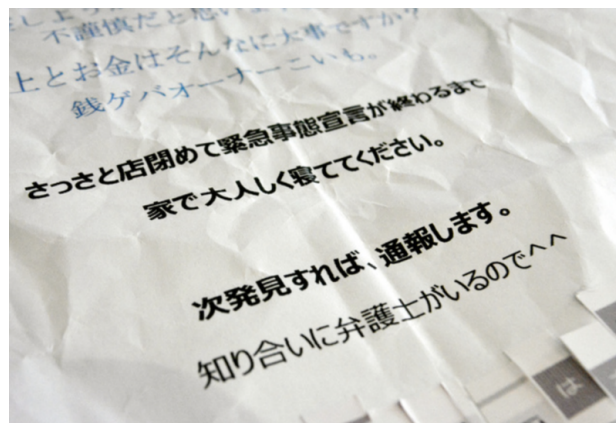 不謹慎だと思いま
上とお金はそんなに大事ですか?
銭ゲバオーナーこいも。
さっさと店閉めて緊急事態宣言が終わるまで
家で大人しく寝ててください。
次発見すれば、通報します。
知り合いに弁護士がいるのでへへ
は